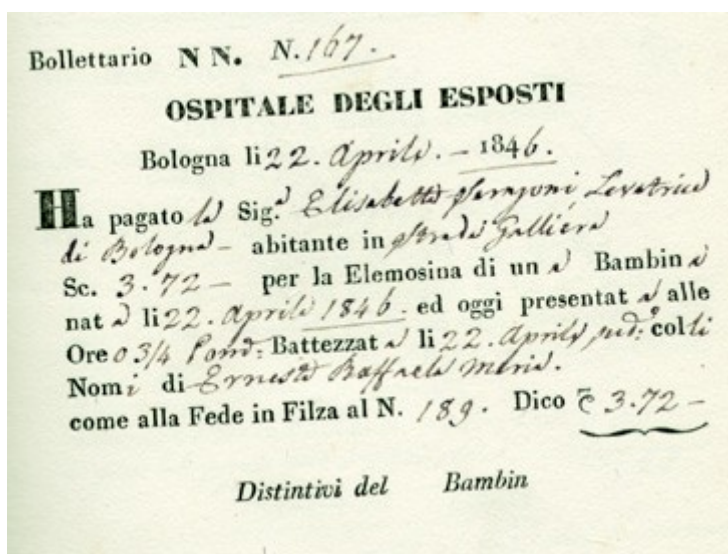 Bollettario N N. N. 167.
OSPITALE DEGLI ESPOSTI
Bologna li 22. Aprile. - 1846.
Ha pagato la Sig.a Elisabetta Saragoni Levatrice
di Bologna - abitante in Strada Galliera
Sc. 3.72 - per la Elemosina di una Bambina
nata li 22. Aprile 1846. ed oggi presentata alle
Ore 0 3/4 Battezzata li 22. Aprile colli
Nomi di Ernesta Raffaela Maria.
come alla Fede in Filza al N. 189. Dico 3.72 -
Distintivi del Bambin